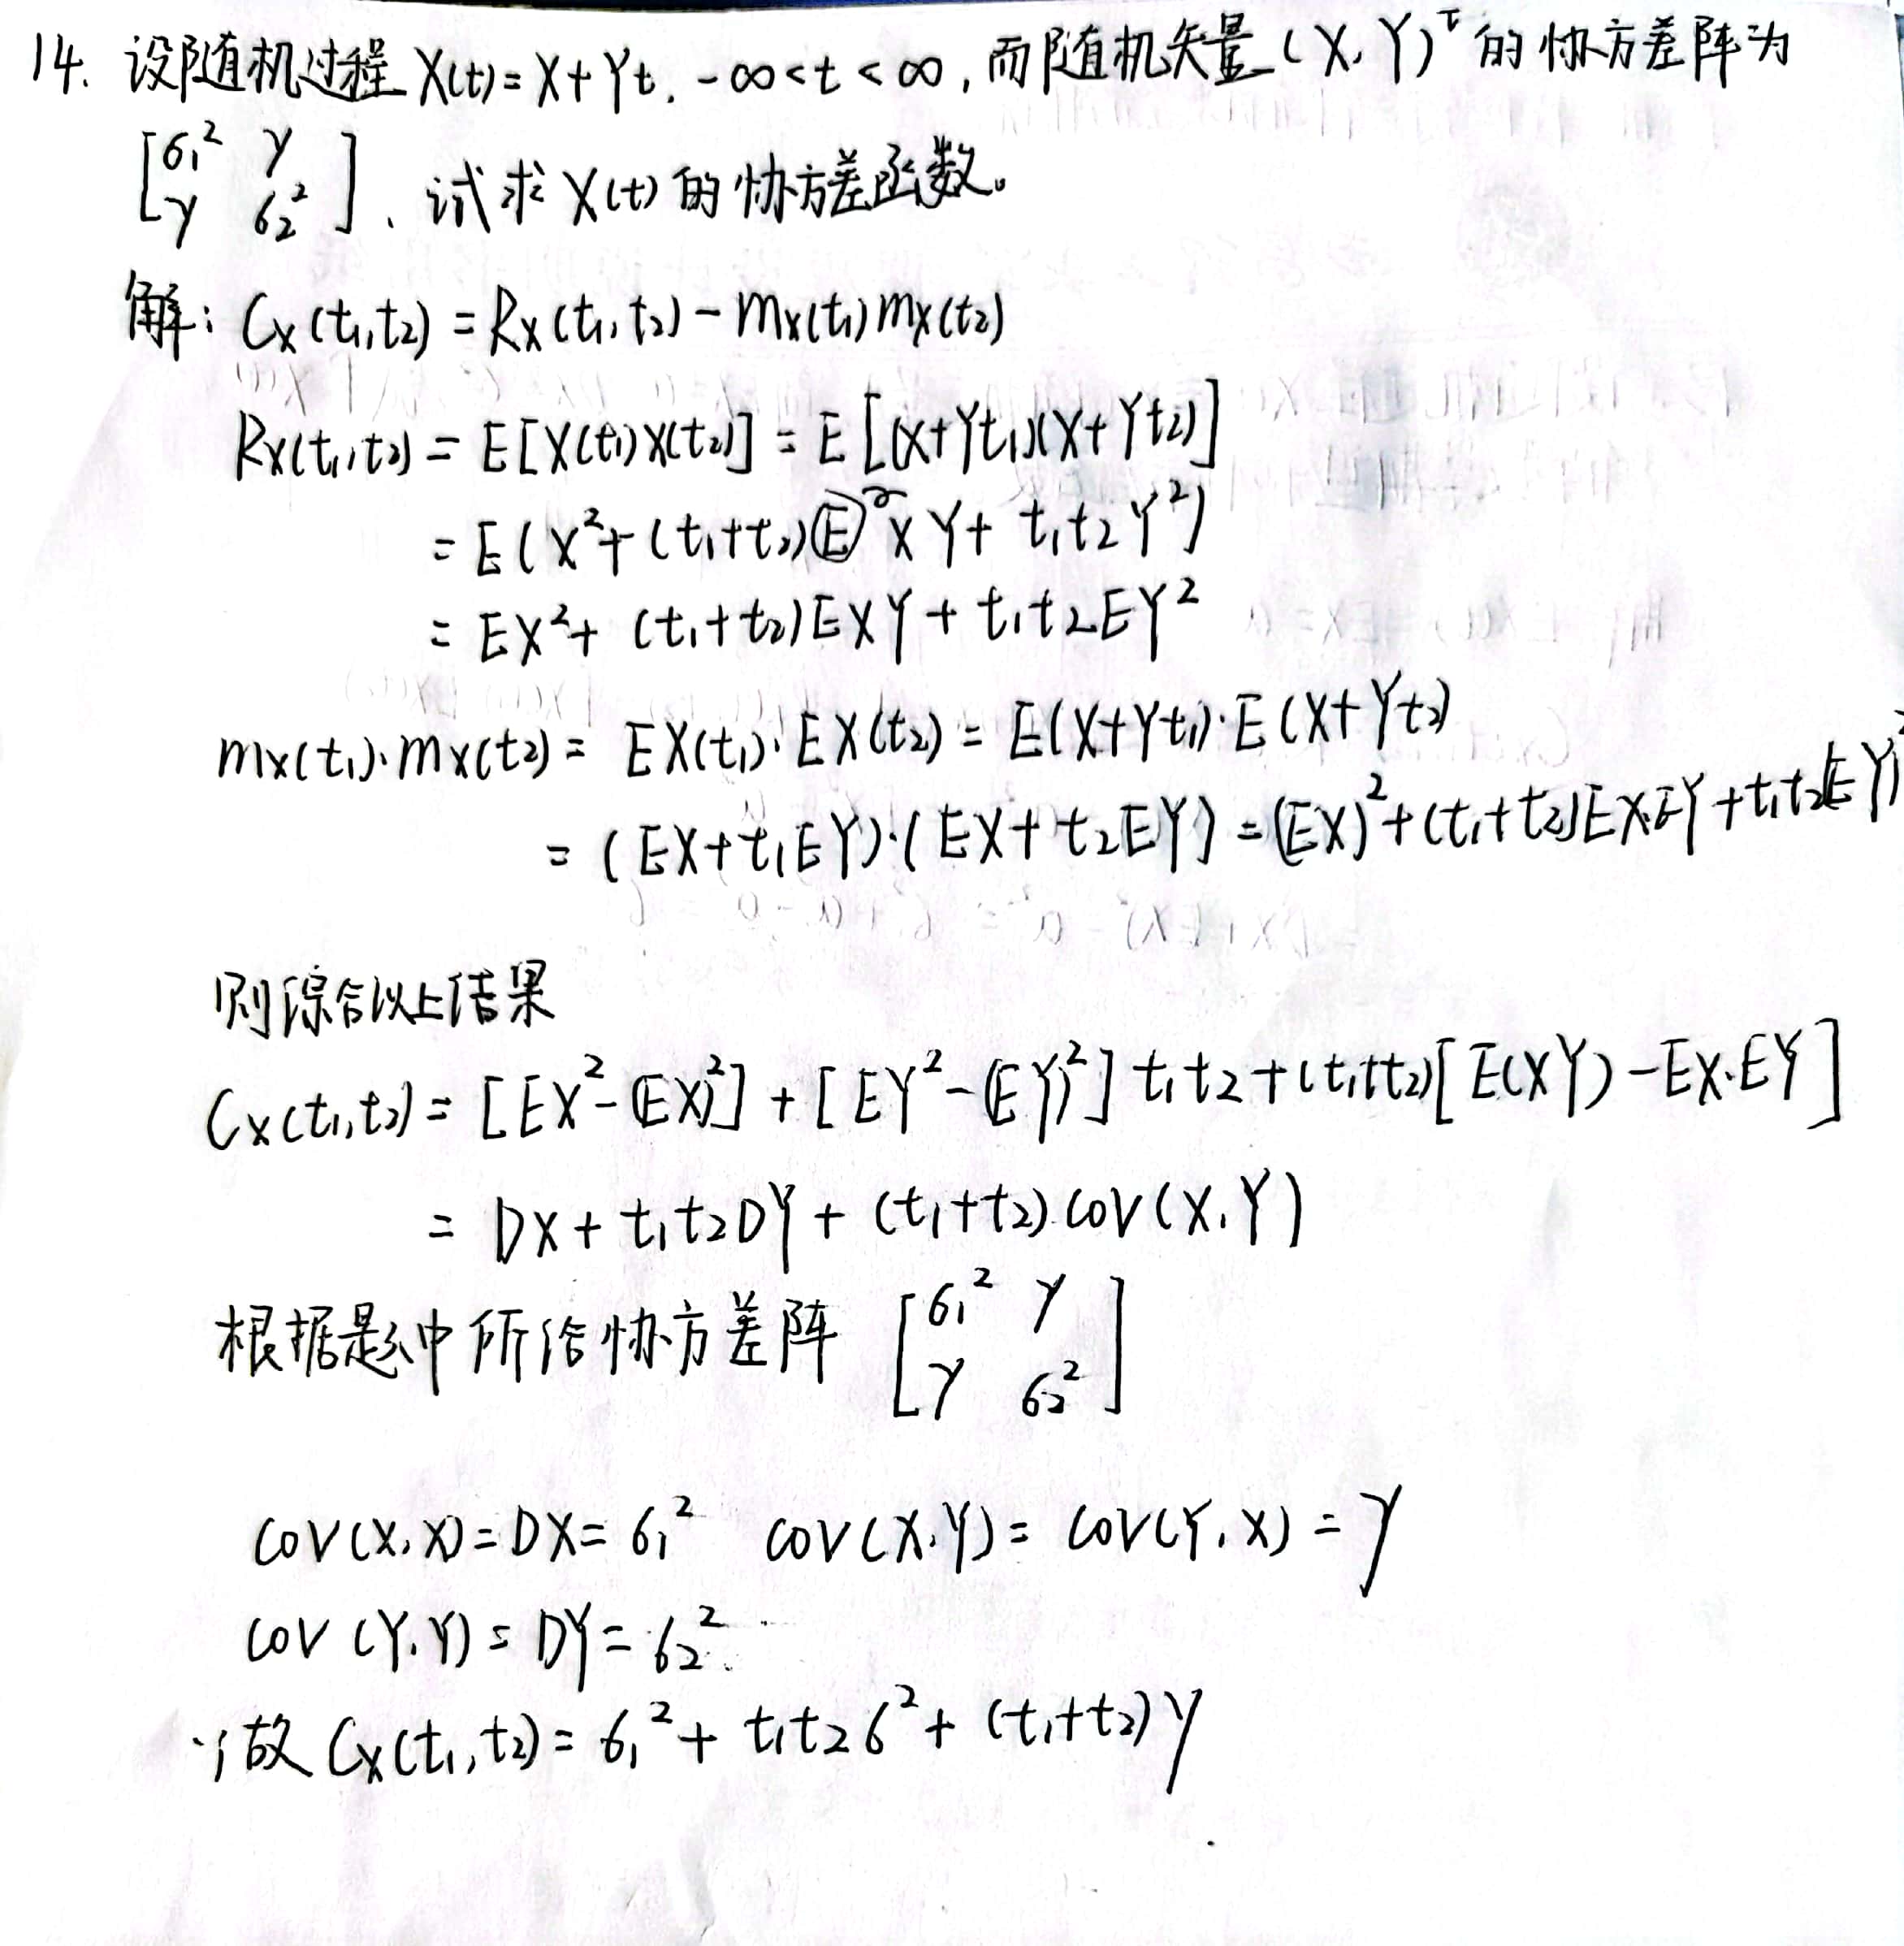 14. 设随机过程 X(t)=X+Yt, -∞<t<∞, 而随机矢量 (X,Y)ᵀ 的协方差阵为
[σ₁² γ
γ σ₂²], 试求 X(t) 的协方差函数。
解: Cx(t₁,t₂) = Rx(t₁,t₂) - mx(t₁)mx(t₂)
Rx(t₁,t₂) = E[X(t₁)X(t₂)] = E[(X+Yt₁)(X+Yt₂)]
= E(X²+(t₁+t₂)XY + t₁t₂Y²)
= EX²+ (t₁+t₂)EXY + t₁t₂EY²
mx(t₁)·mx(t₂) = EX(t₁)·EX(t₂) = E(X+Yt₁)·E(X+Yt₂)
= (EX+t₁EY)·(EX+t₂EY) = (EX)²+(t₁+t₂)EX·EY+t₁t₂(EY)²
则综合以上结果
Cx(t₁,t₂) = [EX²-(EX)²] + [EY²-(EY)²]t₁t₂+(t₁+t₂)[E(XY)-EX·EY]
= DX + t₁t₂DY + (t₁+t₂)cov(X,Y)
根据题中所给协方差阵 [σ₁² γ
γ σ₂²]
cov(X,X)=DX=σ₁² cov(X,Y)=cov(Y,X)=γ
cov(Y,Y)=DY=σ₂²
故 Cx(t₁,t₂)=σ₁²+t₁t₂σ²+(t₁+t₂)γ